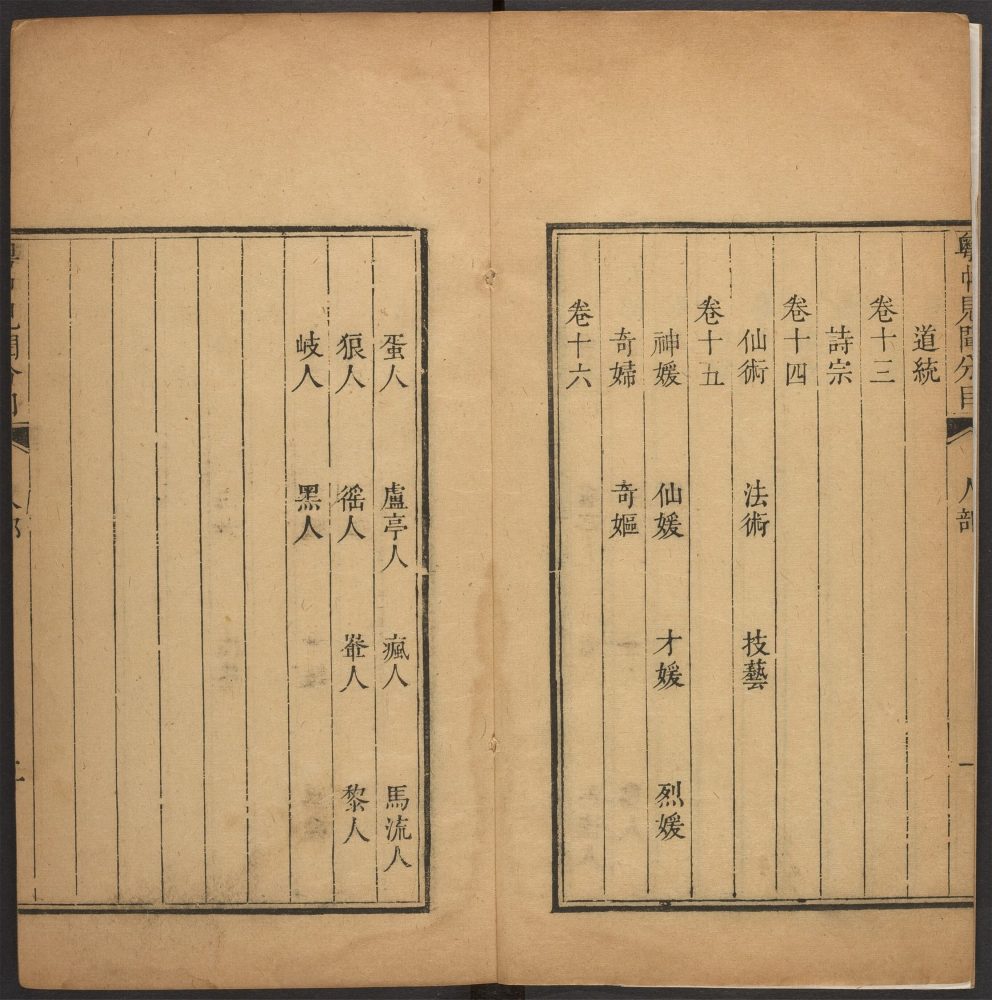 粵中見聞分目
人部
一
道統
卷十三
詩宗
卷十四
仙術 法術 技藝
卷十五
神媛 仙媛 才媛 烈媛
奇婦 奇嫗
卷十六
蛋人 盧亭人 瘋人 馬流人
狼人 徭人 輋人 黎人
岐人 黑人